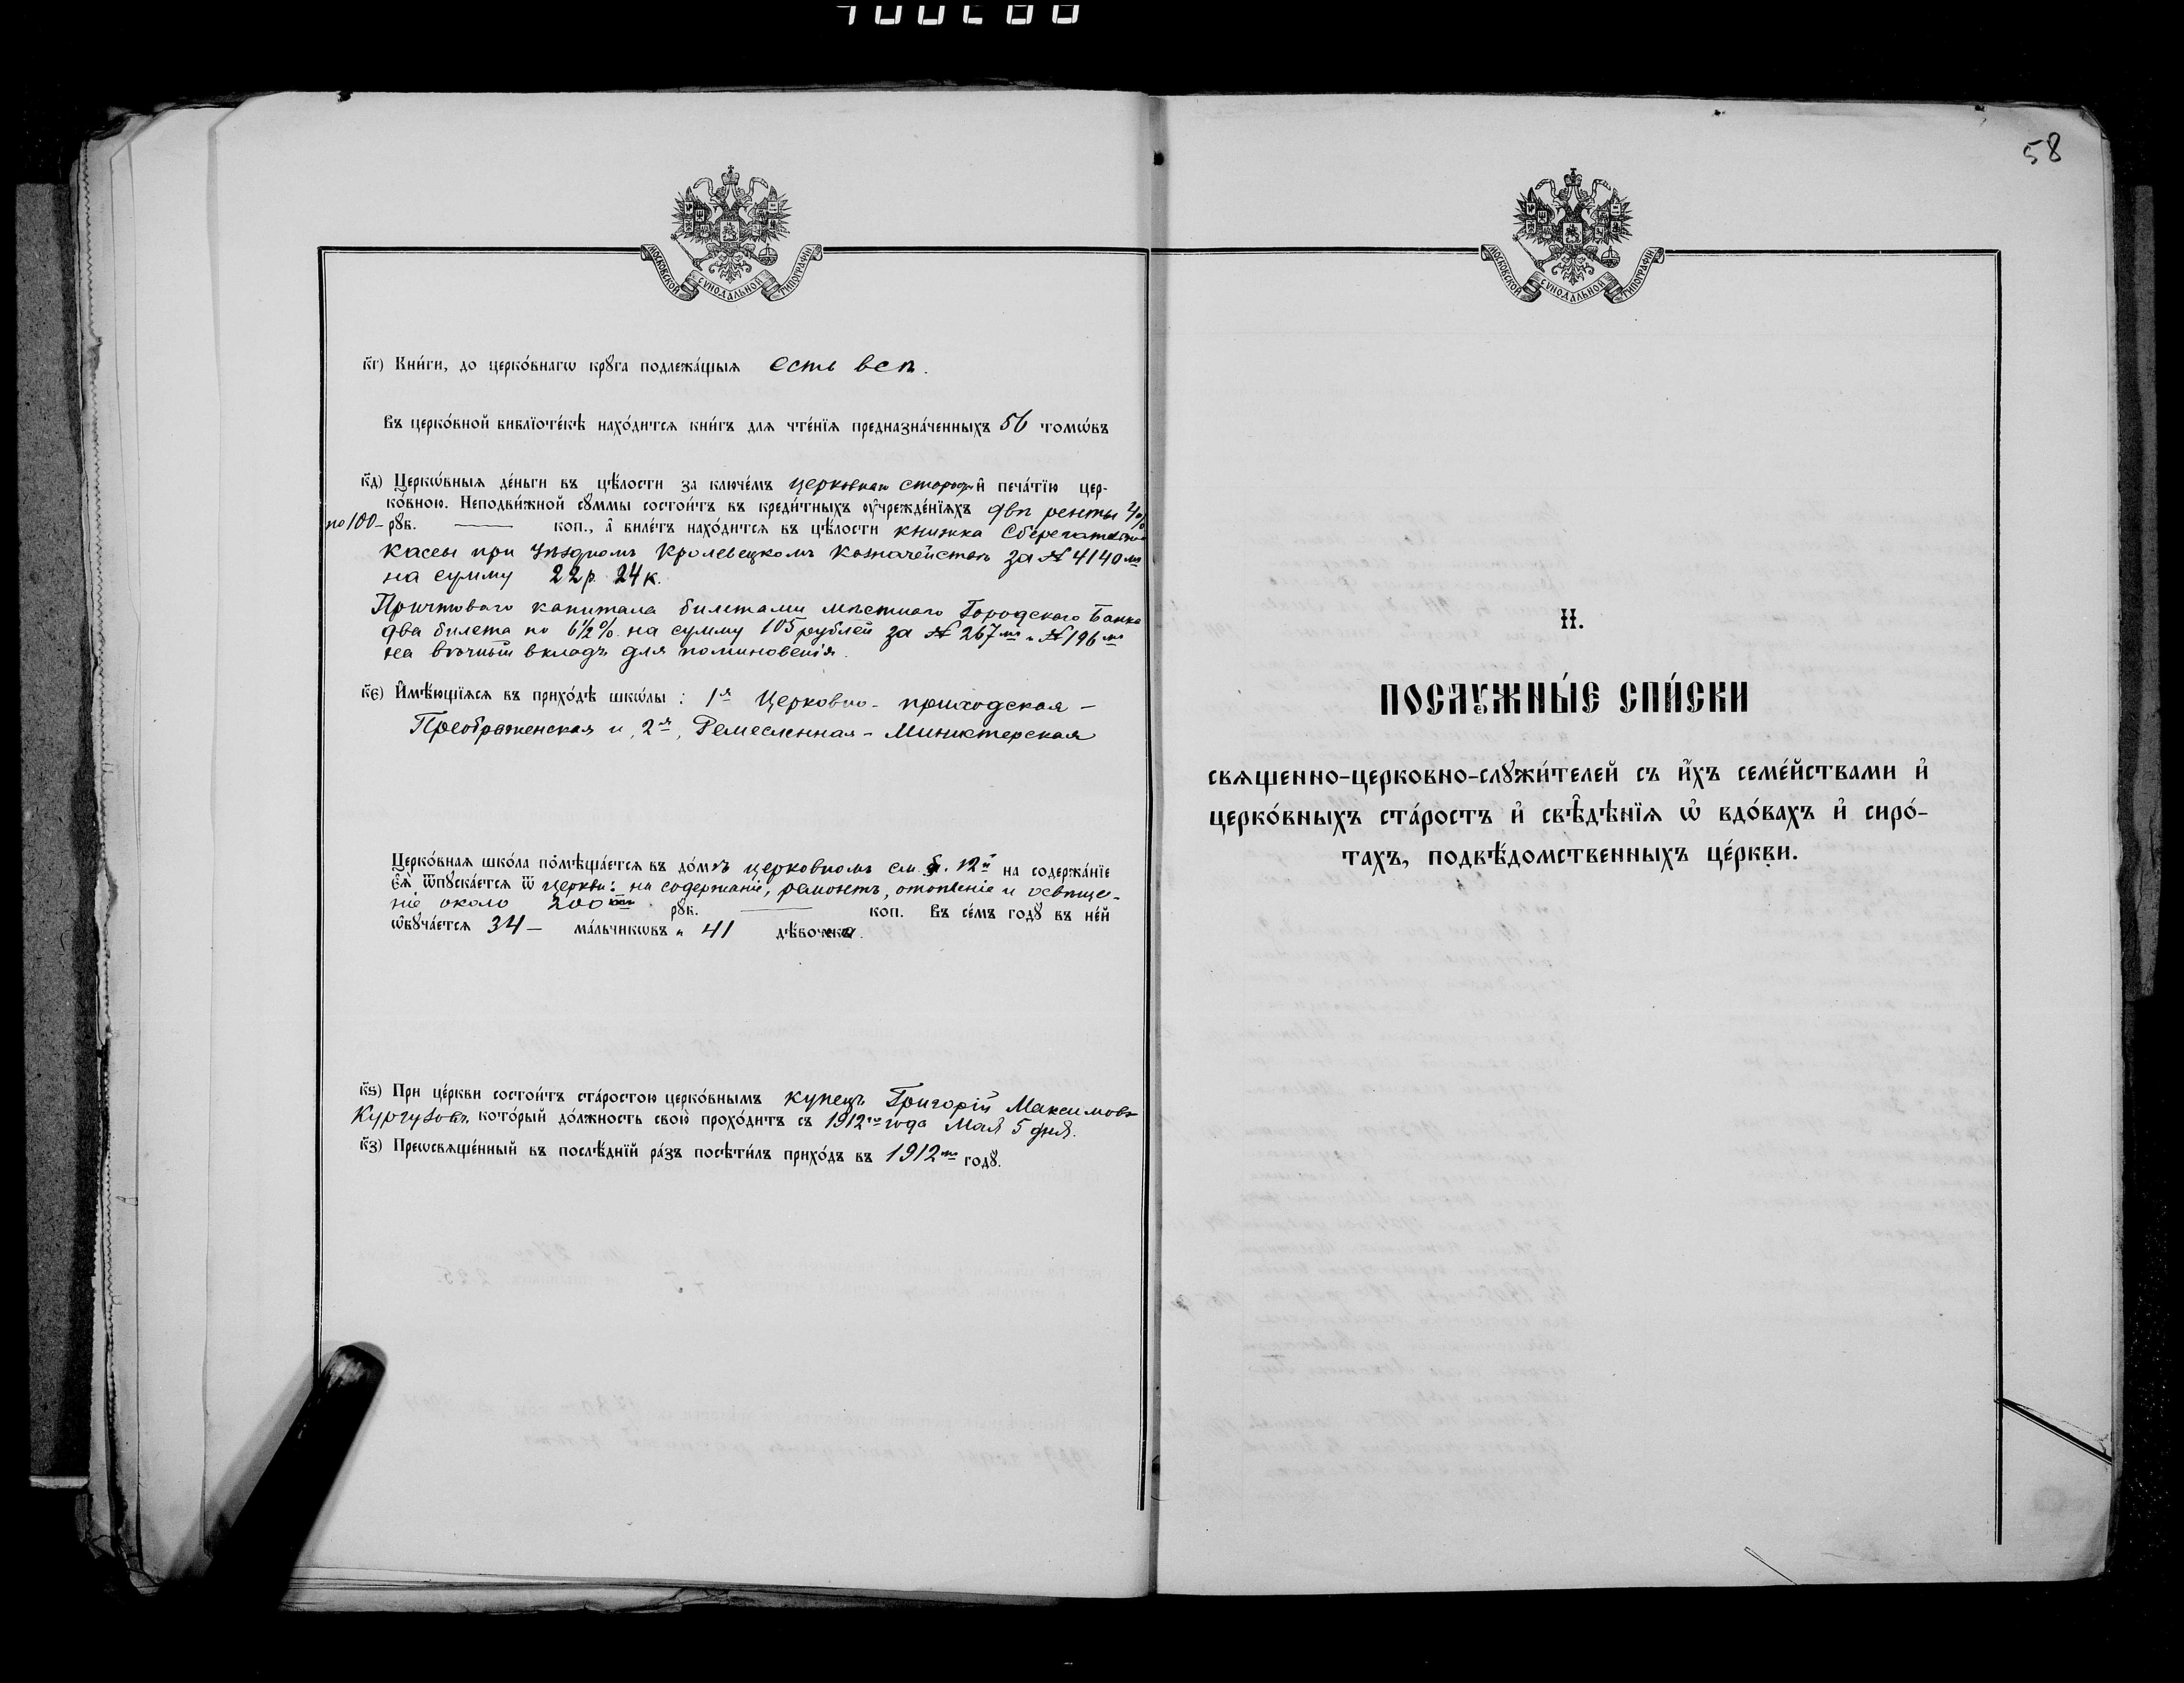 58
МОСКОВСКОЙ СѴНОДАЛЬНОЙ ТИПОГРАФІИ
к҃г) Кни́ги, до церко́внагѡ крꙋга подлежа́щыѧ есть всѣ.
Въ церко́вной библїоте́кѣ нахо́дитсѧ кни́гъ для чте́нїѧ предназна́ченныхъ 56 томѡ́въ
к҃д) Церкѡ́вныѧ де́ньги въ цѣ́лости за ключе́мъ церковнаго старосты и҆ печа́тїю цер-
ко́вною. Неподви́жной сꙋммы состои́тъ въ креди́тныхъ ᲂу҆чрежде́нїѧхъ двѣ ренты 4%
по 100 – рꙋб. —— коп., а҆ биле́тъ нахо́дитсѧ въ цѣ́лости книжка Сберегательной
кассы при Уѣздномъ Кролевецкомъ Казначействѣ за № 4140мъ
на сумму 22 р. 24 к.
Причтоваго капитала билетами мѣстнаго Городского Банка
два билета по 6½% на сумму 105 рублей за № 267мъ и № 196мъ
на вѣчный вкладъ для поминовенія.
к҃є) И҆мѣ́ющїѧсѧ въ прихо́дѣ шкѡ́лы: 1я Церковно-приходская –
Преображенская и, 2я, Ремесленная – Министерская
Церко́вная шко́ла помѣща́етсѧ въ до́мѣ церковномъ см. 12й на содержа́нїе
є҆ѧ̀ ѿпꙋска́етсѧ ѿ церкви: на содержаніе, ремонтъ, отопленіе и освѣще-
ніе около 200 рꙋб. —— коп. Въ се́мъ годꙋ̀ въ не́й
ѡ҆бꙋча́етсѧ 34 – ма́льчикѡвъ и 41 дѣ́вочка.
к҃ѕ) При це́ркви состои́тъ ста́ростою церко́внымъ купецъ Григорій Максимовъ
Кургузовъ, кото́рый до́лжность свою̀ прохо́дитъ съ 1912го года Мая 5 дня.
к҃з) Преѡсвѧще́нный въ послѣ́днїй ра́зъ посѣти́лъ прихо́дъ въ 1912мъ годꙋ̀.
МОСКОВСКОЙ СѴНОДАЛЬНОЙ ТИПОГРАФІИ
II.
ПОСЛꙋЖНЫ́Е СПИ́СКИ
свѧщенно-церковно-слꙋжи́телей съ и҆́хъ семе́йствами и҆
церко́вныхъ ста́ростъ и҆ свѣ́дѣнїѧ ѡ҆ вдо́вахъ и҆ сиро́-
тахъ, подвѣ́домственныхъ це́ркви.